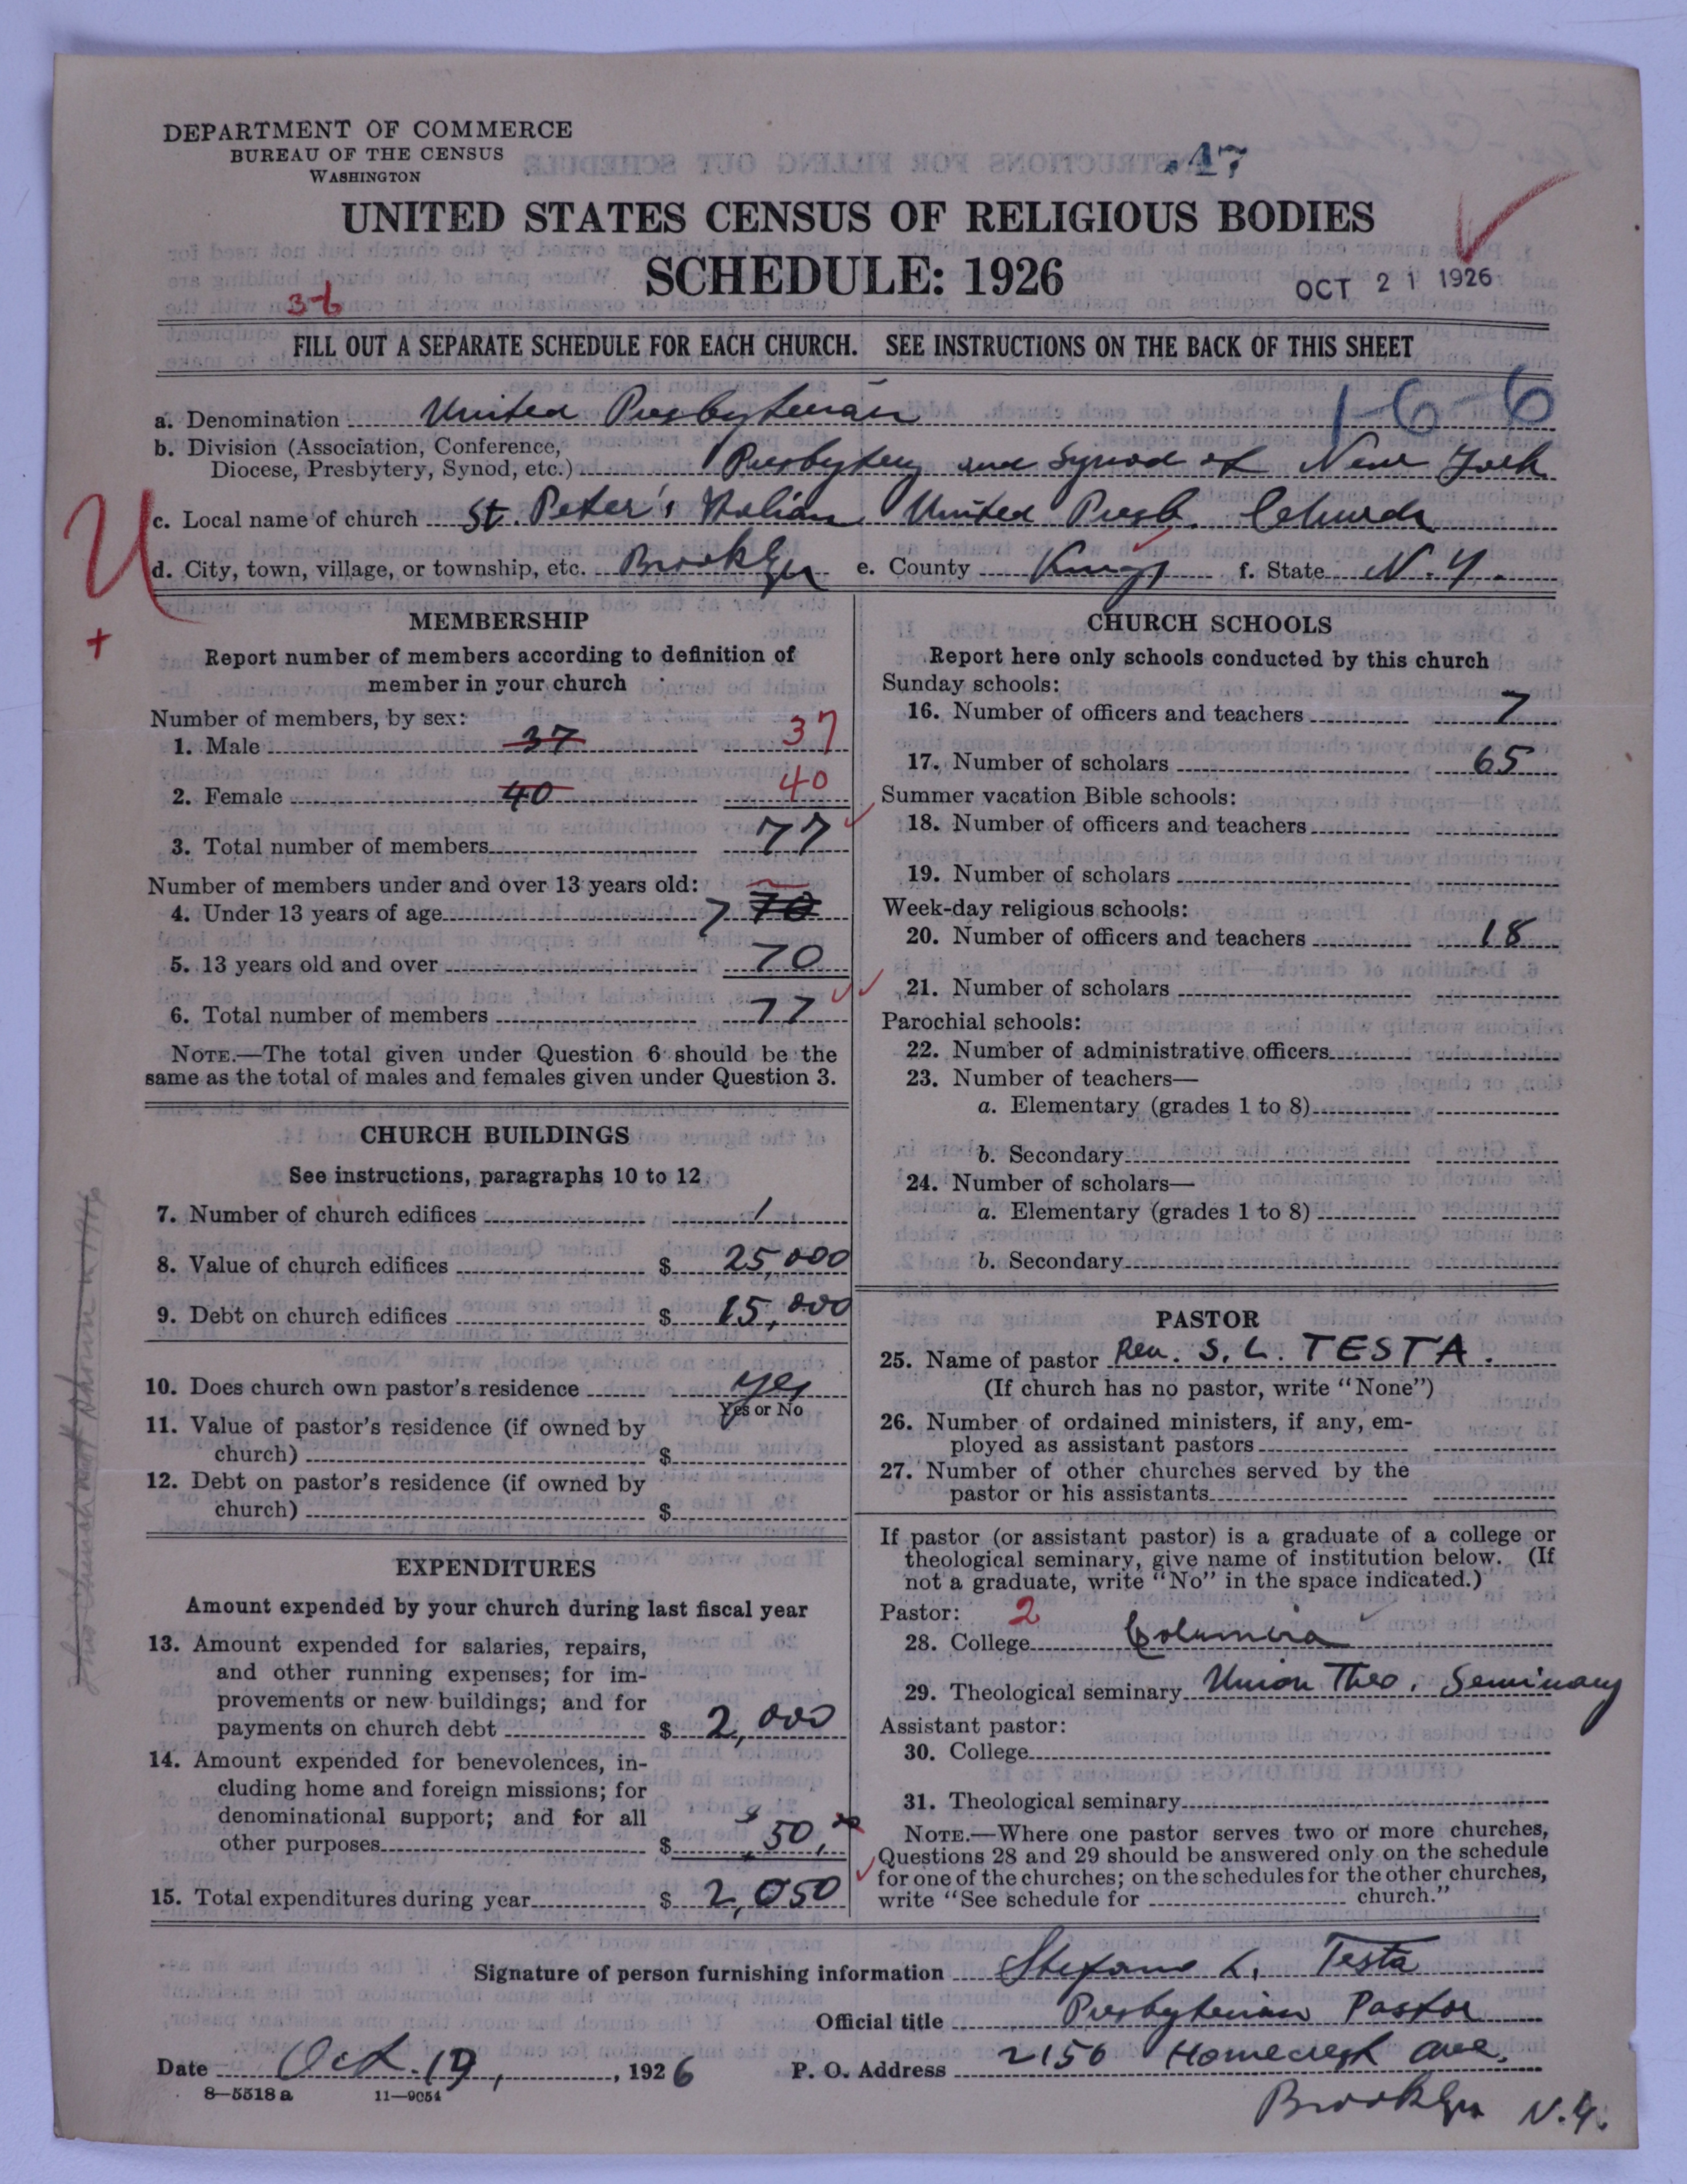 DEPARTMENT OF COMMERCE
BUREAU OF THE CENSUS
WASHINGTON
.47
UNITED STATES CENSUS OF RELIGIOUS BODIES
SCHEDULE: 1926
OCT 21 1926
3-6
FILL OUT A SEPARATE SCHEDULE FOR EACH CHURCH. SEE INSTRUCTIONS ON THE BACK OF THIS SHEET
1-6-6
a. Denomination United Presbyterian
b. Division (Association, Conference,
Diocese, Presbytery, Synod, etc.) Presbytery and Synod of New York
U
c. Local name of church St. Peter's Italian United Presb. Church
d. City, town, village, or township, etc. Brooklyn e. County Kings f. State N.Y.
+
MEMBERSHIP
Report number of members according to definition of
member in your church
Number of members, by sex:
1. Male 37 37
2. Female 40 40
3. Total number of members 77
Number of members under and over 13 years old:
4. Under 13 years of age 7 70
5. 13 years old and over 70
6. Total number of members 77
NOTE.—The total given under Question 6 should be the
same as the total of males and females given under Question 3.
CHURCH BUILDINGS
See instructions, paragraphs 10 to 12
7. Number of church edifices 1
8. Value of church edifices $ 25,000
9. Debt on church edifices $ 15,000
10. Does church own pastor's residence yes
Yes or No
11. Value of pastor's residence (if owned by
church) $
12. Debt on pastor's residence (if owned by
church) $
EXPENDITURES
Amount expended by your church during last fiscal year
13. Amount expended for salaries, repairs,
and other running expenses; for im-
provements or new buildings; and for
payments on church debt $ 2,000
14. Amount expended for benevolences, in-
cluding home and foreign missions; for
denominational support; and for all
other purposes $ $50.00
15. Total expenditures during year $ 2,050
CHURCH SCHOOLS
Report here only schools conducted by this church
Sunday schools:
16. Number of officers and teachers 7
17. Number of scholars 65
Summer vacation Bible schools:
18. Number of officers and teachers
19. Number of scholars
Week-day religious schools:
20. Number of officers and teachers 18
21. Number of scholars
Parochial schools:
22. Number of administrative officers
23. Number of teachers—
a. Elementary (grades 1 to 8)
b. Secondary
24. Number of scholars—
a. Elementary (grades 1 to 8)
b. Secondary
PASTOR
25. Name of pastor Rev. S. L. TESTA.
(If church has no pastor, write "None")
26. Number of ordained ministers, if any, em-
ployed as assistant pastors
27. Number of other churches served by the
pastor or his assistants
If pastor (or assistant pastor) is a graduate of a college or
theological seminary, give name of institution below. (If
not a graduate, write "No" in the space indicated.)
Pastor: 2
28. College Columbia
29. Theological seminary Union Theo. Seminary
Assistant pastor:
30. College
31. Theological seminary
NOTE.—Where one pastor serves two or more churches,
Questions 28 and 29 should be answered only on the schedule
for one of the churches; on the schedules for the other churches,
write "See schedule for church."
Signature of person furnishing information Stefano L. Testa
Official title Presbyterian Pastor
Date Oct. 19, 1926 P. O. Address 2156 Homecrest Ave.
8—5518a 11—9054
Brooklyn N.Y.